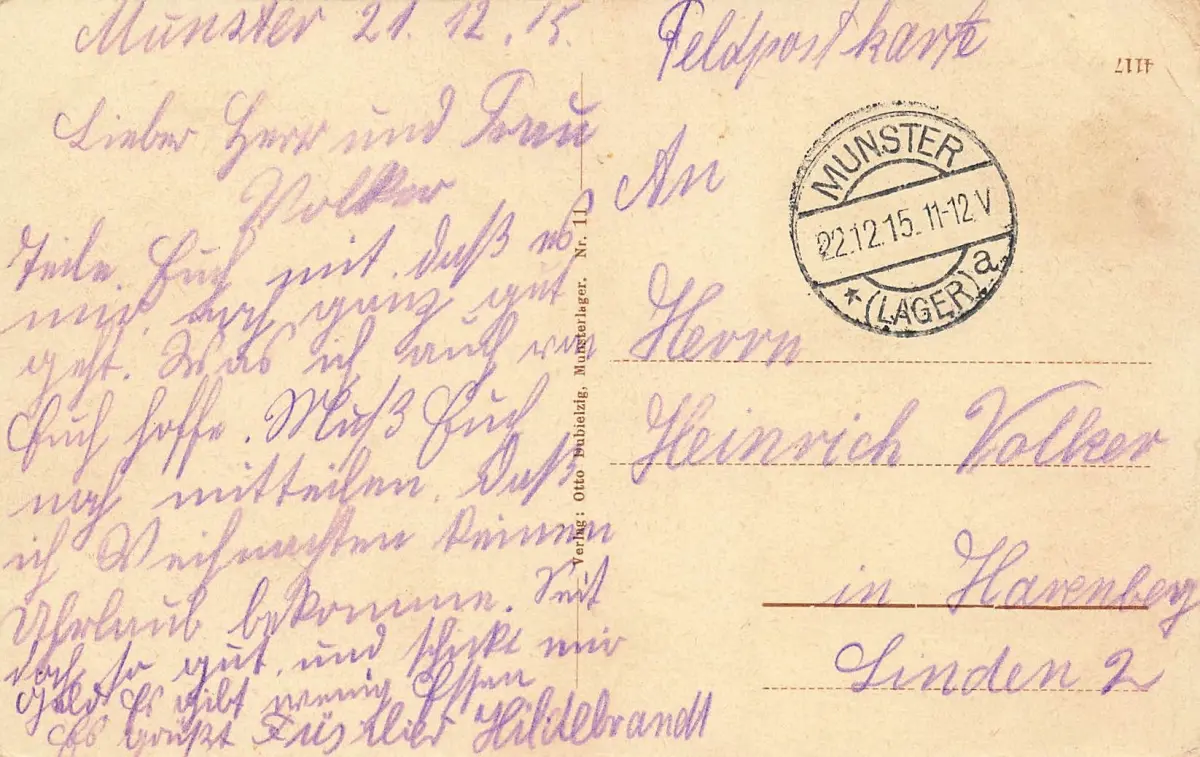 Munster 21.12.15.
Lieber Herr und Frau
Volker
Teile Euch mit. daß es
mir noch ganz gut
geht. Was ich auch von
Euch hoffe. Muß Euch
noch mitteilen. Daß
ich Weihnachten keinen
Uhrlaub bekomme. Seit
doch so gut und schickt mir
Geld Es gibt wenig Essen
Es grüßt Füsilier Hildebrandt
Verlag: Otto Dubielzig, Munsterlager. Nr. 11
Feldpostkarte
4117
MUNSTER
22.12.15. 11-12 V
* (LAGER) a
An
Herrn
Heinrich Volker
in Harenberg
Linden 2